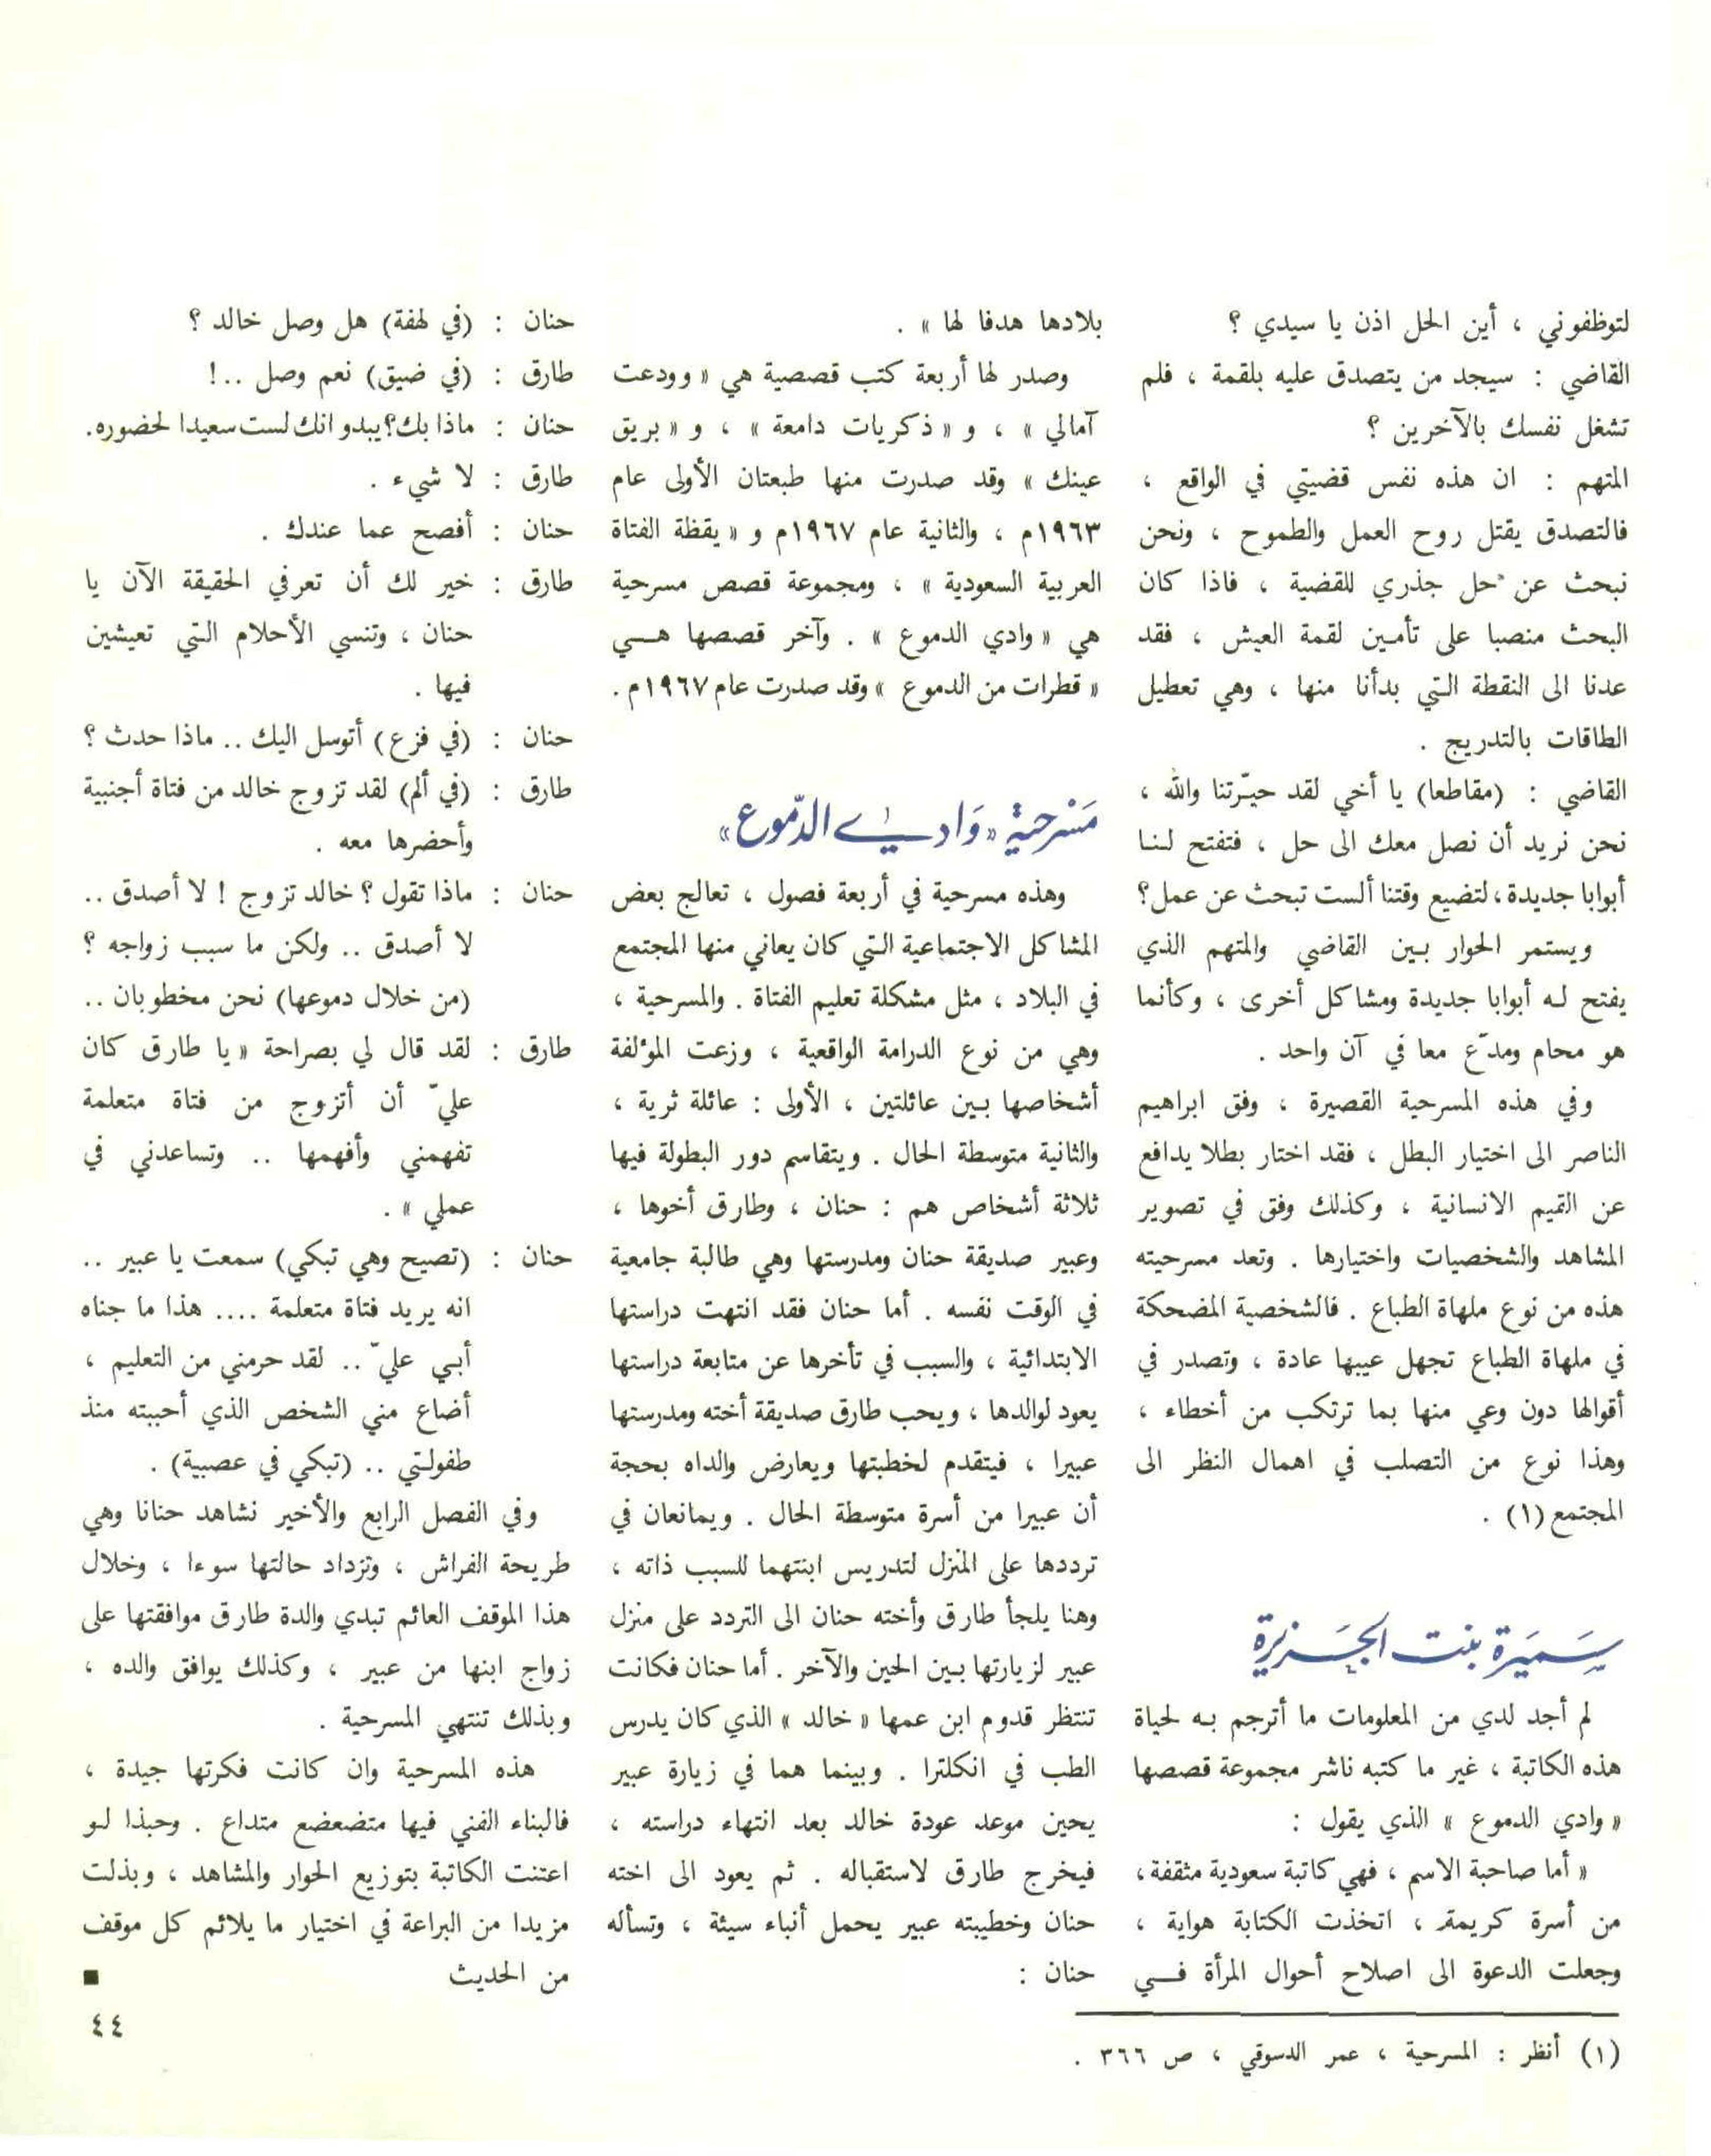 لتوظفوني ، أين الحل اذن يا سيدي ؟
القاضي : سيجد من يتصدق عليه بلقمة ، فلم
تشغل نفسك بالآخرين ؟
المتهم : ان هذه نفس قضيتي في الواقع ،
فالتصدق يقتل روح العمل والطموح ، ونحن
نبحث عن حل جذري للقضية ، فاذا كان
البحث منصبا على تأمين لقمة العيش ، فقد
عدنا الى النقطة التي بدأنا منها ، وهي تعطيل
الطاقات بالتدريج .
القاضي : (مقاطعا) يا أخي لقد حيّرتنا والله ،
نحن نريد أن نصل معك الى حل ، فتفتح لنا
أبوابا جديدة ، لتضيع وقتنا ألست تبحث عن عمل؟
ويستمر الحوار بين القاضي والمتهم الذي
يفتح له أبوابا جديدة ومشاكل أخرى ، وكأنما
هو محام ومدّع معا في آن واحد .
وفي هذه المسرحية القصيرة ، وفق ابراهيم
الناصر الى اختيار البطل ، فقد اختار بطلا يدافع
عن القيم الانسانية ، وكذلك وفق في تصوير
المشاهد والشخصيات واختيارها . وتعد مسرحيته
هذه من نوع ملهاة الطباع . فالشخصية المضحكة
في ملهاة الطباع تجهل عيبها عادة ، وتصدر في
أقوالها دون وعي منها بما ترتكب من أخطاء ،
وهذا نوع من التصلب في اهمال النظر الى
المجتمع (١) .
سَميَرة بنت الجَزيرة
لم أجد لدي من المعلومات ما أترجم به لحياة
هذه الكاتبة ، غير ما كتبه ناشر مجموعة قصصها
« وادي الدموع » الذي يقول :
« أما صاحبة الاسم ، فهي كاتبة سعودية مثقفة ،
من أسرة كريمة ، اتخذت الكتابة هواية ،
وجعلت الدعوة الى اصلاح أحوال المرأة فــي
بلادها هدفا لها » .
وصدر لها أربعة كتب قصصية هي « وودعت
آمالي » ، و « ذكريات دامعة » ، و « بريق
عينك » وقد صدرت منها طبعتان الأولى عام
١٩٦٣م ، والثانية عام ١٩٦٧م و « يقظة الفتاة
العربية السعودية » ، ومجموعة قصص مسرحية
هي « وادي الدموع » . وآخر قصصها هــي
« قطرات من الدموع » وقد صدرت عام ١٩٦٧م .
مَسْرحية «وَادي الدّموع»
وهذه مسرحية في أربعة فصول ، تعالج بعض
المشاكل الاجتماعية التي كان يعاني منها المجتمع
في البلاد ، مثل مشكلة تعليم الفتاة . والمسرحية ،
وهي من نوع الدرامة الواقعية ، وزعت المؤلفة
أشخاصها بين عائلتين ، الأولى : عائلة ثرية ،
والثانية متوسطة الحال . ويتقاسم دور البطولة فيها
ثلاثة أشخاص هم : حنان ، وطارق أخوها ،
وعبير صديقة حنان ومدرستها وهي طالبة جامعية
في الوقت نفسه . أما حنان فقد انتهت دراستها
الابتدائية ، والسبب في تأخرها عن متابعة دراستها
يعود لوالدها ، ويحب طارق صديقة أخته ومدرستها
عبيرا ، فيتقدم لخطبتها ويعارض والداه بحجة
أن عبيرا من أسرة متوسطة الحال . ويمانعان في
ترددها على المنزل لتدريس ابنتهما للسبب ذاته ،
وهنا يلجأ طارق وأخته حنان الى التردد على منزل
عبير لزيارتها بين الحين والآخر . أما حنان فكانت
تنتظر قدوم ابن عمها « خالد » الذي كان يدرس
الطب في انكلترا . وبينما هما في زيارة عبير
يحين موعد عودة خالد بعد انتهاء دراسته ،
فيخرج طارق لاستقباله . ثم يعود الى اخته
حنان وخطيبته عبير يحمل أنباء سيئة ، وتسأله
حنان :
حنان : (في لهفة) هل وصل خالد ؟
طارق : (في ضيق) نعم وصل ..!
حنان : ماذا بك؟ يبدو انك لست سعيدا لحضوره.
طارق : لا شيء .
حنان : أفصح عما عندك .
طارق : خير لك أن تعرفي الحقيقة الآن يا
حنان ، وتنسي الأحلام التي تعيشين
فيها .
حنان : (في فزع) أتوسل اليك .. ماذا حدث ؟
طارق : (في ألم) لقد تزوج خالد من فتاة أجنبية
وأحضرها معه .
حنان : ماذا تقول ؟ خالد تزوج ! لا أصدق ..
لا أصدق .. ولكن ما سبب زواجه ؟
(من خلال دموعها) نحن مخطوبان ..
طارق : لقد قال لي بصراحة « يا طارق كان
عليّ أن أتزوج من فتاة متعلمة
تفهمني وأفهمها .. وتساعدني في
عملي » .
حنان : (تصيح وهي تبكي) سمعت يا عبير ..
انه يريد فتاة متعلمة .... هذا ما جناه
أبي عليّ .. لقد حرمني من التعليم ،
أضاع مني الشخص الذي أحببته منذ
طفولتي .. (تبكي في عصبية) .
وفي الفصل الرابع والأخير نشاهد حنانا وهي
طريحة الفراش ، وتزداد حالتها سوءا ، وخلال
هذا الموقف العائم تبدي والدة طارق موافقتها على
زواج ابنها من عبير ، وكذلك يوافق والده ،
وبذلك تنتهي المسرحية .
هذه المسرحية وان كانت فكرتها جيدة ،
فالبناء الفني فيها متضعضع متداع . وحبذا لو
اعتنت الكاتبة بتوزيع الحوار والمشاهد ، وبذلت
مزيدا من البراعة في اختيار ما يلائم كل موقف
من الحديث ■
(١) أنظر : المسرحية ، عمر الدسوقي ، ص ٣٦٦ .
٤٤